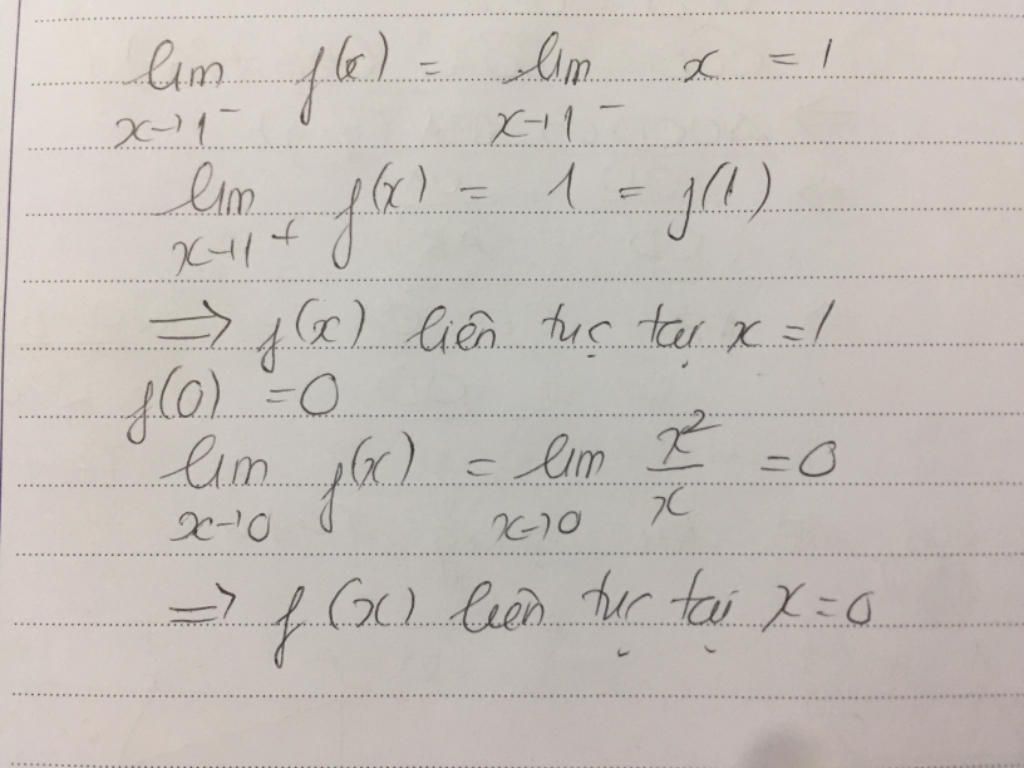 lim f(x) = lim x = 1
x→1⁻ x→1⁻
lim f(x) = 1 = f(1)
x→1⁺
⇒ f(x) liên tục tại x = 1
f(0) = 0
lim f(x) = lim x²/x = 0
x→0 x→0
⇒ f(x) liên tục tại x = 0